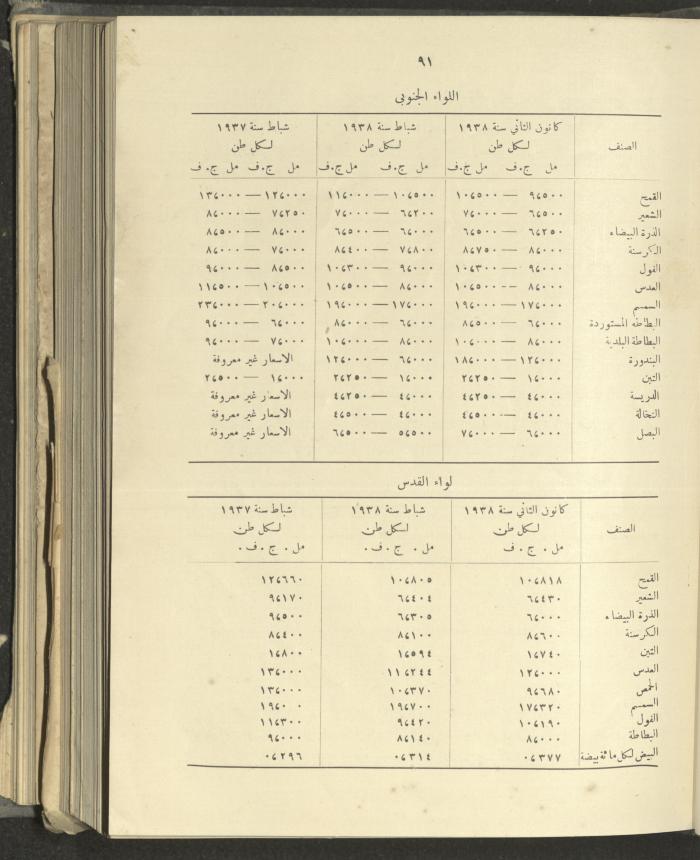 ٩١
اللواء الجنوبي
الصنف كانون الثاني سنة ١٩٣٨ شباط سنة ١٩٣٨ شباط سنة ١٩٣٧
لكل طن لكل طن لكل طن
مل ج.ف مل ج.ف مل ج.ف مل ج.ف مل ج.ف مل ج.ف
القمح ٩،٥٠٠ — ١٠،٥٠٠ ١٠،٥٠٠ — ١١،٠٠٠ ١٢،٠٠٠ — ١٣،٠٠٠
الشعير ٦،٥٠٠ — ٧،٠٠٠ ٦،٢٠٠ — ٧،٠٠٠ ٧،٢٥٠ — ٨،٠٠٠
الذرة البيضاء ٦،٢٥٠ — ٦،٥٠٠ ٦،٠٠٠ — ٦،٥٠٠ ٨،٠٠٠ — ٨،٥٠٠
الكرسنة ٨،٠٠٠ — ٨،٧٥٠ ٧،٨٠٠ — ٨،٤٠٠ ٧،٠٠٠ — ٨،٠٠٠
الفول ٩،٠٠٠ — ١٠،٣٠٠ ٩،٠٠٠ — ١٠،٣٠٠ ٨،٥٠٠ — ٩،٠٠٠
العدس ٨،٠٠٠ — ١٠،٥٠٠ ٨،٠٠٠ — ١٠،٥٠٠ ١٠،٥٠٠ — ١١،٥٠٠
السمسم ١٧،٠٠٠ — ١٩،٠٠٠ ١٧،٠٠٠ — ١٩،٠٠٠ ٢٠،٠٠٠ — ٢٣،٠٠٠
البطاطه المستوردة ٦،٠٠٠ — ٨،٥٠٠ ٦،٠٠٠ — ٨،٠٠٠ ٦،٠٠٠ — ٩،٠٠٠
البطاطة البلدية ٨،٠٠٠ — ١٠،٠٠٠ ٨،٠٠٠ — ١٠،٠٠٠ ٧،٠٠٠ — ٩،٠٠٠
البندورة ١٢،٠٠٠ — ١٨،٠٠٠ ٦،٠٠٠ — ١٢،٠٠٠ الاسعار غير معروفة
التبن ١،٠٠٠ — ٢،٢٥٠ ١،٠٠٠ — ٢،٢٥٠ ١،٠٠٠ — ٢،٥٠٠
الدريسة ٤،٠٠٠ — ٤،٢٥٠ ٤،٠٠٠ — ٤،٢٥٠ الاسعار غير معروفة
النخالة ٤،٠٠٠ — ٤،٥٠٠ ٤،٠٠٠ — ٤،٥٠٠ الاسعار غير معروفة
البصل ٦،٠٠٠ — ٧،٠٠٠ ٥،٥٠٠ — ٦،٥٠٠ الاسعار غير معروفة
لواء القدس
الصنف كانون الثاني سنة ١٩٣٨ شباط سنة ١٩٣٨ شباط سنة ١٩٣٧
لكل طن لكل طن لكل طن
مل . ج . ف مل . ج . ف . مل . ج . ف .
القمح ١٠،٨١٨ ١٠،٨٠٥ ١٢،٦٦٠
الشعير ٦،٤٣٠ ٦،٤٠٤ ٩،١٧٠
الذرة البيضاء ٦،٠٠٠ ٦،٣٠٥ ٩،٥٠٠
الكرسنة ٨،٦٠٠ ٨،١٠٠ ٨،٤٠٠
التبن ١،٧٤٠ ١،٥٩٤ ١،٨٠٠
العدس ١٢،٠٠٠ ١١،٢٤٤ ١٣،٠٠٠
الحمص ٩،٦٨٠ ١٠،٣٧٠ ١٣،٠٠٠
السمسم ١٧،٣٢٠ ١٩،٧٠٠ ١٩،٠ ٠
الفول ١٠،١٩٠ ٩،٤٢٠ ١١،٣٠٠
البطاطة ٨،٠٠٠ ٨،١٤٠ ٩،٠٠٠
البيض لكل مائة بيضة ٠،٣٧٧ ٠،٣١٤ ٠،٢٩٦